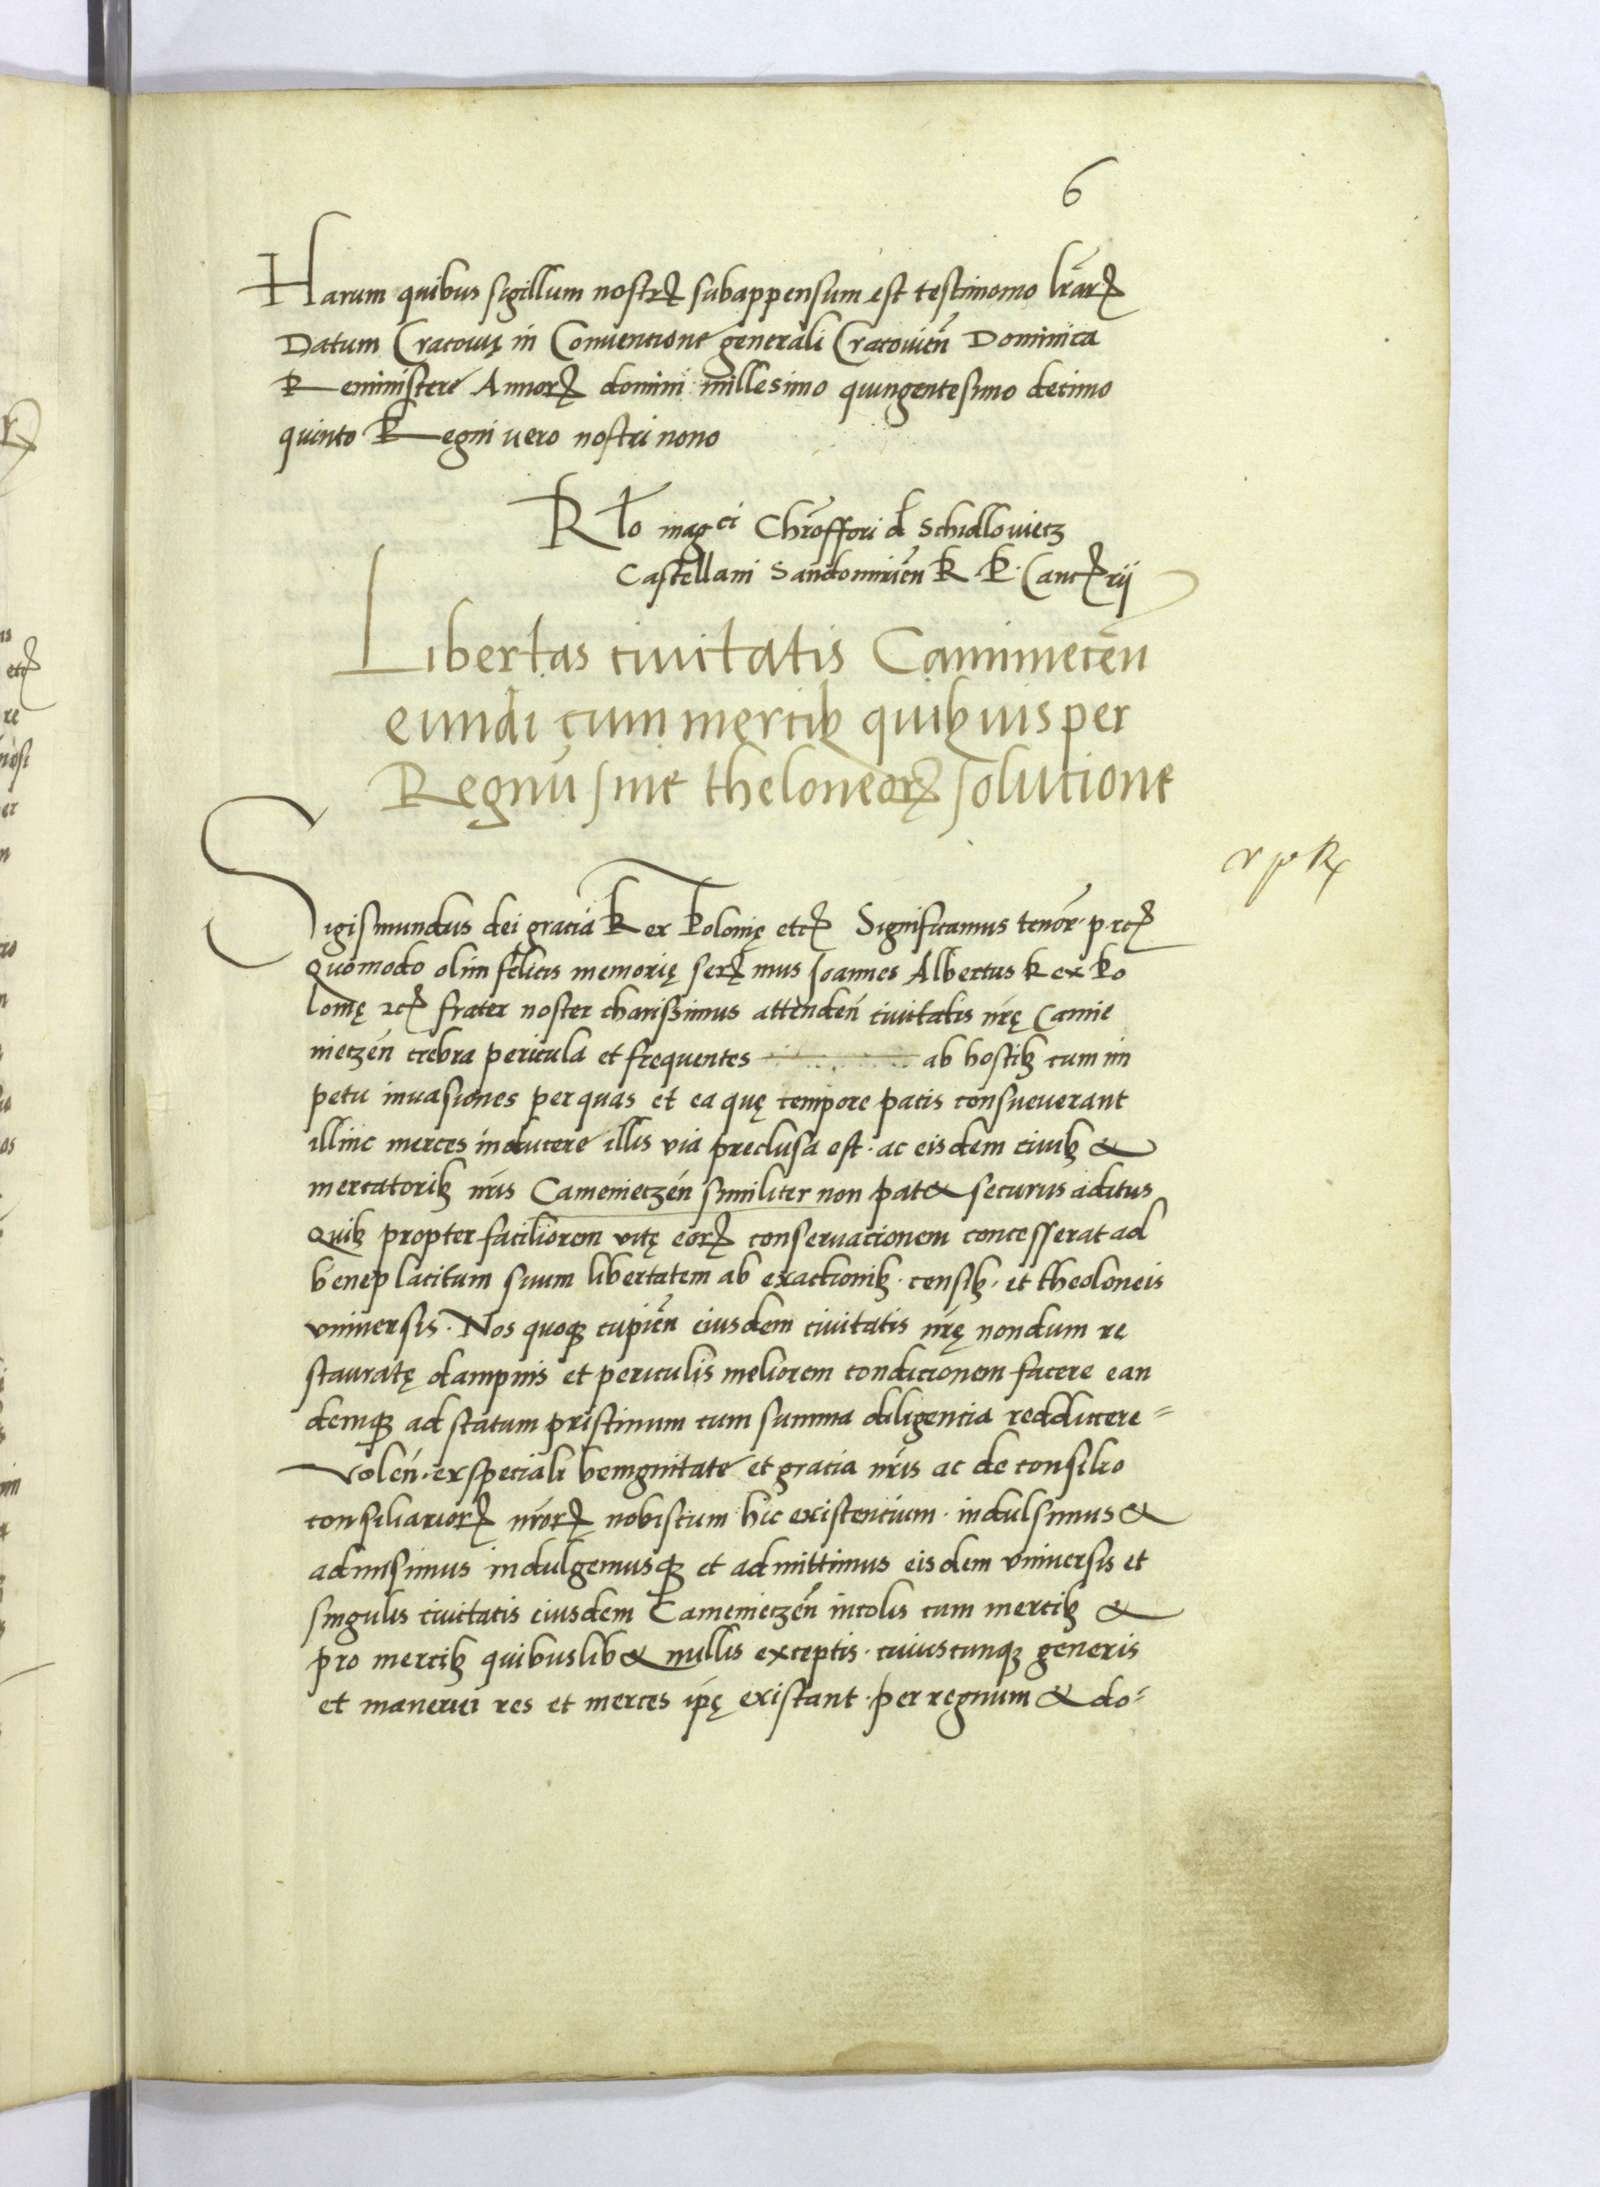 6
Harum quibus sigillum nostrꝝ subappensum est testimonio lr̄arꝝ
Datum Cracovię in Conventione generali Cracovień Dominica
Reminiscere Annorꝝ domini millesimo quingentesimo decimo
quinto Regni vero nostri nono
Rlo magci Chr̄offori d̄ Schidlovietz
Castellani Sandomirień R. P. Cancꝝrij
Libertas civitatis Caminecēn
eundi cum mercibꝫ quibꝫvis per
Regnū sine theloneorꝝ solutione
Sigismundus dei gracia Rex Polonię etcꝝ Significamus tenor̄ · p · rcꝝ
Quomodo olim felicis memorię serꝝmus Joannes Albertus Rex Po
lonię ꝛcꝝ frater noster charissimus attendeń civitatis nr̄ę Camie
nieczeń crebra pericula et frequentes ab hostibꝫ cum im
petu invasiones per quas et ea quę tempore pacis consueverant
illinc merces inducere illis via preclusa est · ac eisdem civibꝫ &
mercatoribꝫ nr̄is Camenieczeń similiter non pat& securus aditus
Quibꝫ propter faciliorem vitę eorꝝ conservacionem concesserat ad
beneplacitum suum libertatem ab exactionibꝫ · censibꝫ · et theoloneis
vniversis · Nos quoqꝫ cupień eiusdem civitatis nr̄ę nondum re
stauratę dampnis et periculis meliorem condicionem facere ean
demqꝫ ad statum pristinum cum summa diligencia redducere=
volen̄ · ex speciali benignitate et gracia nr̄is ac de consilio
consiliariorꝝ nr̄orꝝ nobiscum hic existencium · indulsimus &
admisimus indulgemusqꝫ et admittimus eisdem vniversis et
singulis civitatis eiusdem Camenieczeń incolis cum mercibꝫ &
pro mercibꝫ quibuslib& nullis exceptis · cuiuscunqꝫ generis
et maneriei res et merces ip̄ę existant · per regnum & do=